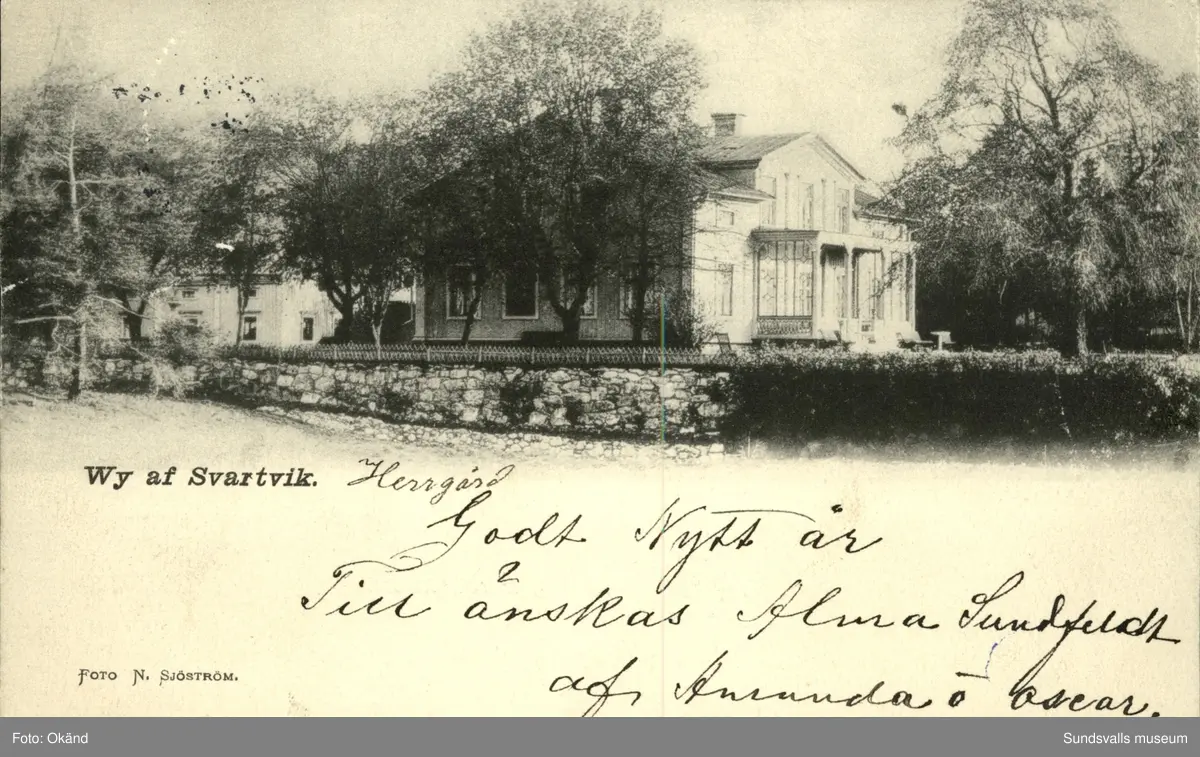 Wy af Svartvik. Herrgård
Godt Nytt år
Till önskas Alma Sundfeldt
af Amanda o oscar.
Foto N. Sjöström.
Foto: Okänd
Sundsvalls museum